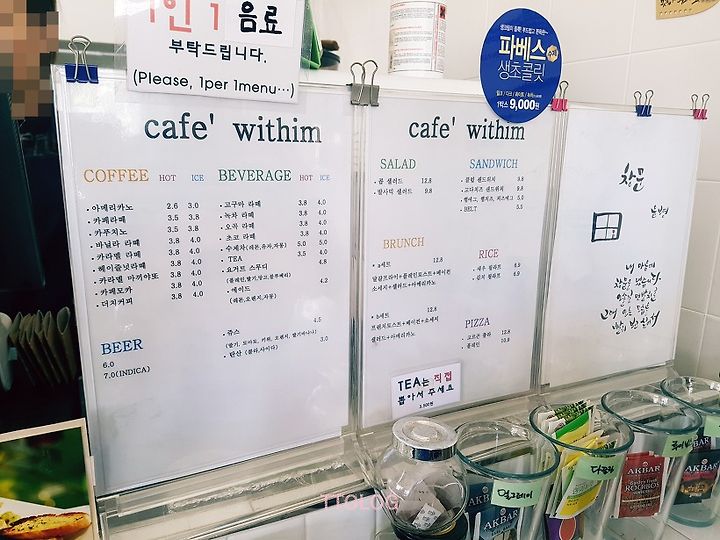 1인 1 음료
부탁드립니다.
(Please, 1per 1menu…)
cafe' withim
COFFEE HOT ICE
· 아메리카노 2.6 3.0
· 카페라떼 3.5 3.8
· 카푸치노 3.5 3.8
· 바닐라 라떼 3.8 4.0
· 카라멜 라떼 3.8 4.0
· 헤이즐넛라떼 3.8 4.0
· 카라멜 마끼야또 3.8 4.0
· 카페모카 3.8 4.0
· 더치커피 3.8 4.0
BEER
6.0
7.0(INDICA)
BEVERAGE HOT ICE
· 고구마 라떼 3.8 4.0
· 녹차 라떼 3.8 4.0
· 오곡 라떼 3.8 4.0
· 초코 라떼 3.8 4.0
· 수제차(레몬,유자,자몽) 5.0 5.0
· TEA 3.5 4.0
· 요거트 스무디 4.8
(플레인,딸기,망고,블루베리)
· 에이드 4.2
(레몬,오렌지,자몽)
· 쥬스 4.5
(딸기, 토마토, 키위, 오렌지, 딸기바나나)
· 탄산 (콜라,사이다) 3.0
cafe' withim
SALAD
· 콥 샐러드 12.8
· 감사믹 샐러드 9.8
SANDWICH
· 클럽 샌드위치 9.8
· 고다치즈 샌드위치 9.8
· BELT 5.5
BRUNCH
· a세트 12.8
달걀프라이+플레인토스트+베이컨
소세지+샐러드+아메리카노
· b세트 12.8
프렌치토스트+베이컨+소세지
샐러드+아메리카노
RICE
· 새우 필라프 6.9
· 김치 필라프 6.9
PIZZA
· 고르곤 졸라 12.8
· 플레인 10.9
TEA는 직접
뽑아서 주세요
3,500원
파베스
생초콜릿
1박스 9,000원
창문
내 마음에
TTOLOG
얼그레이
AKBAR
AKBAR
ROOIBOS
AKBAR